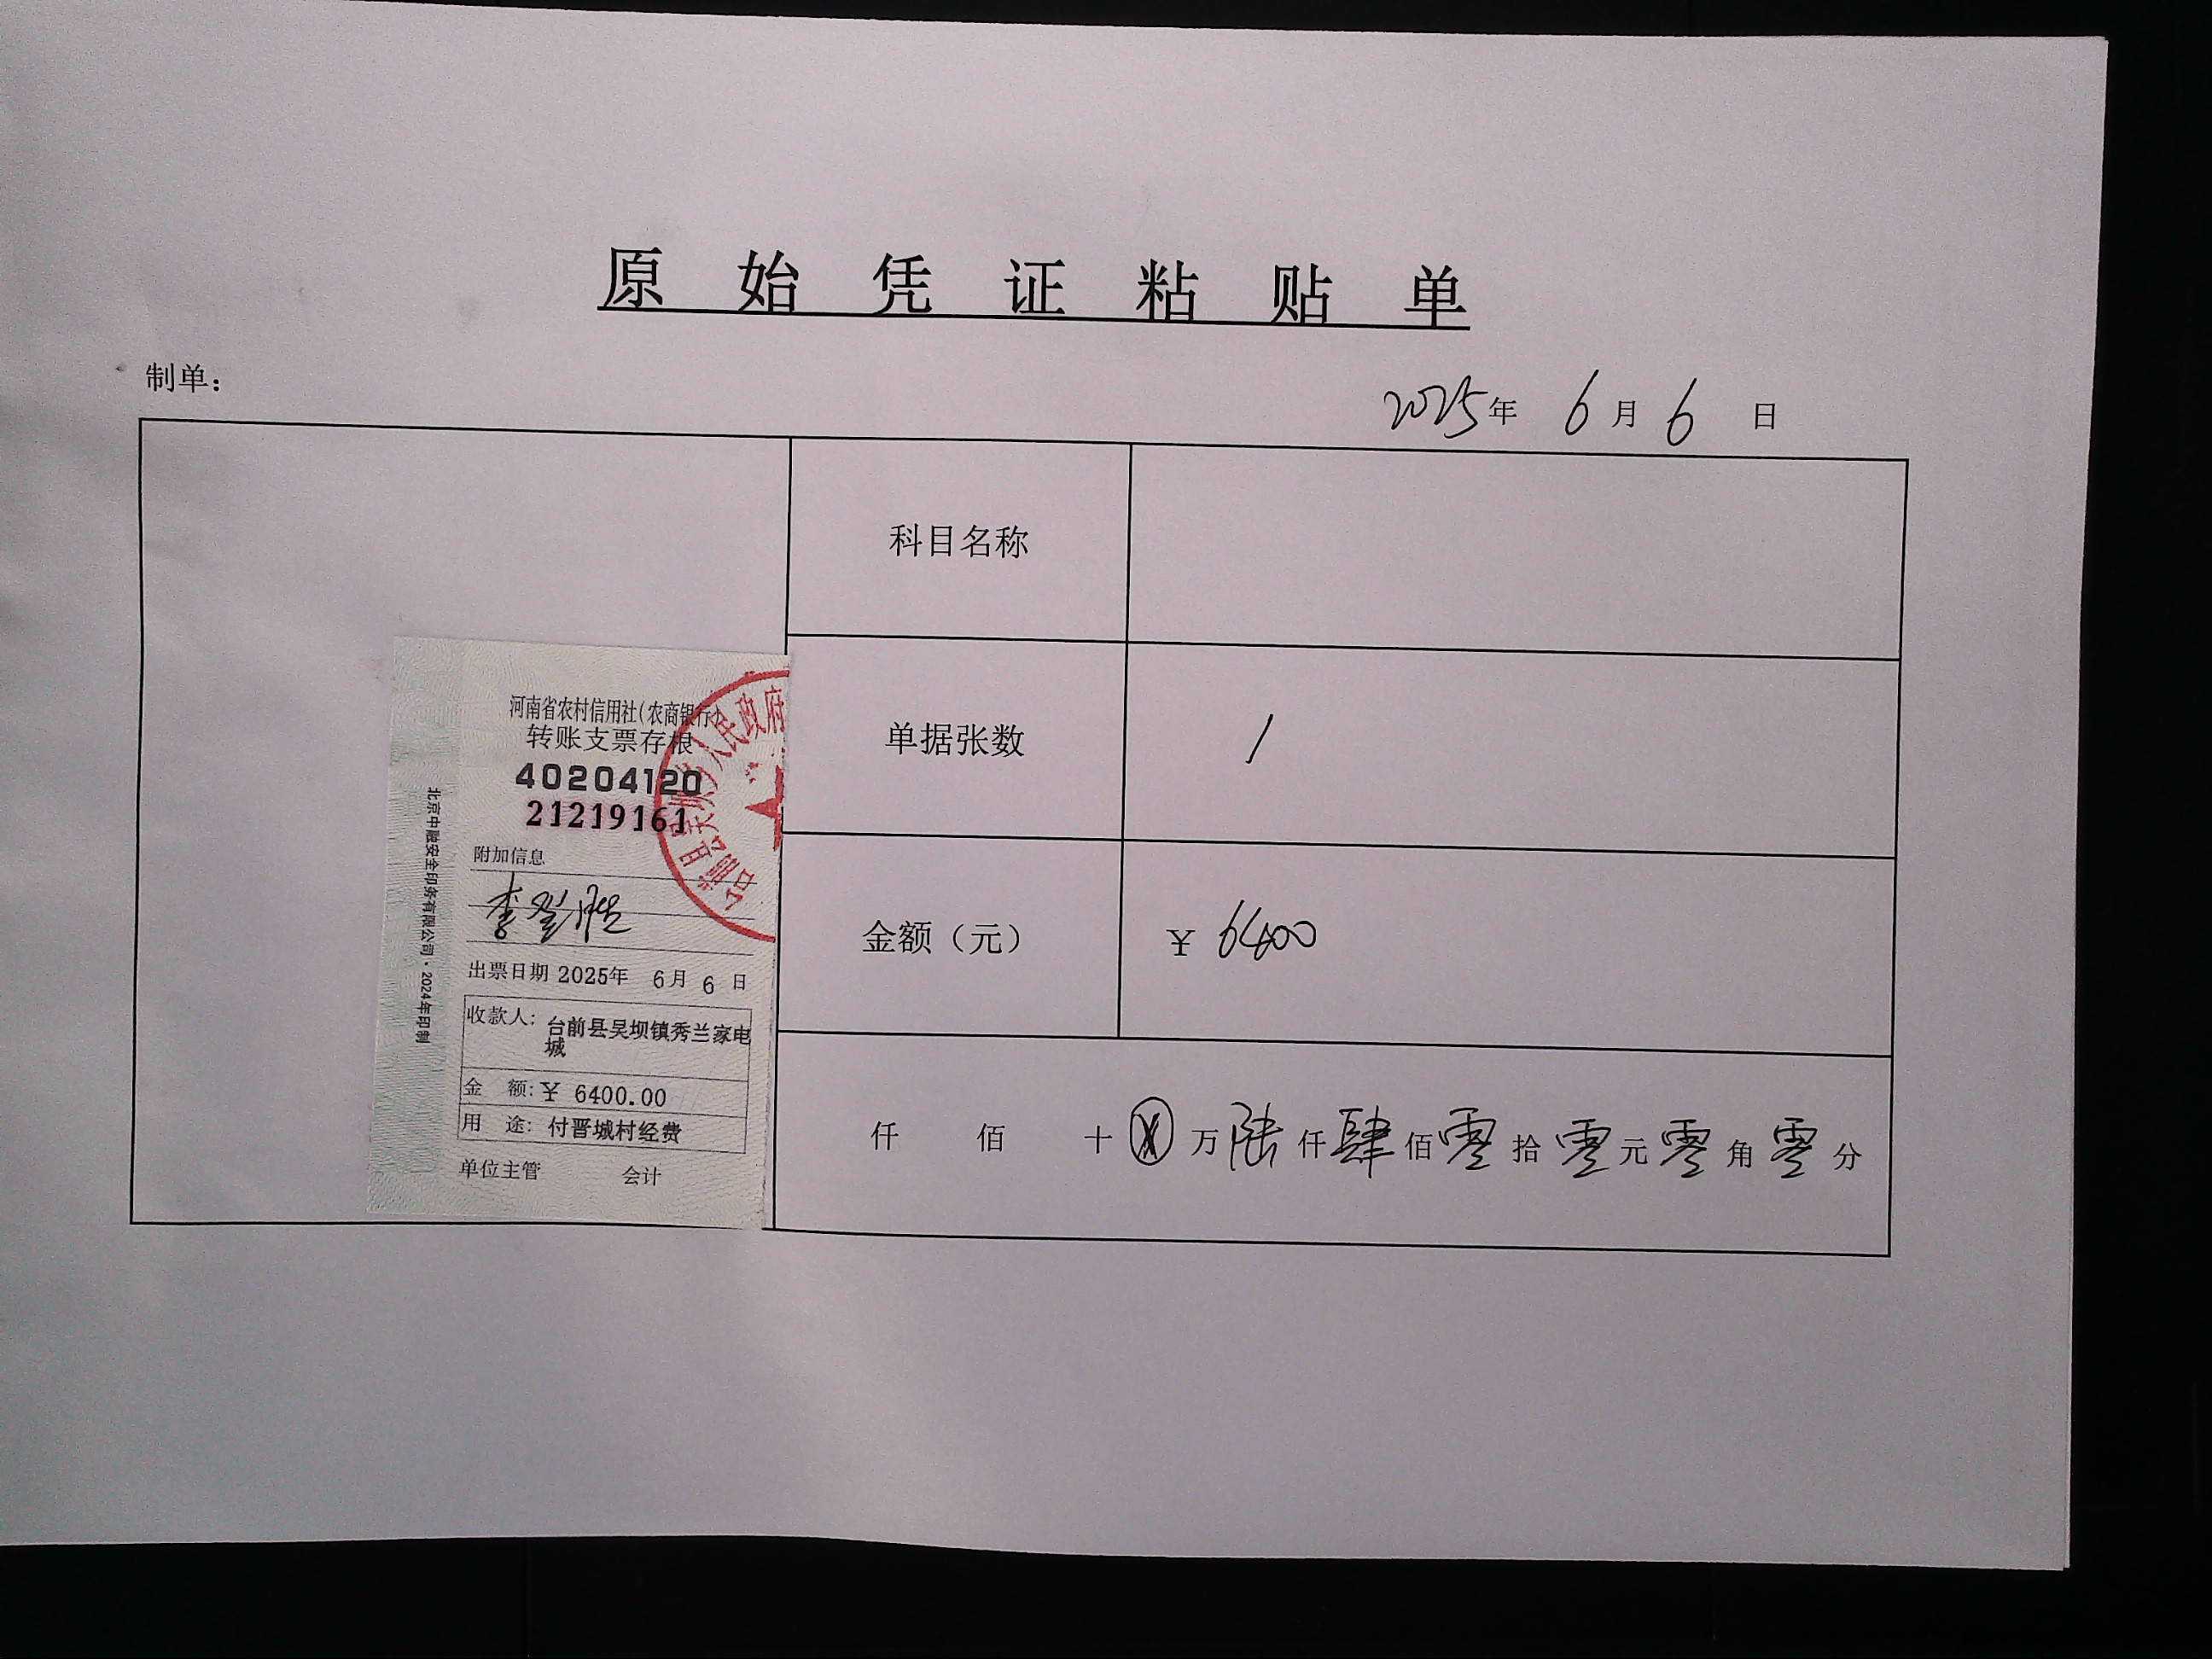 原始凭证粘贴单
制单：
2025年 6月 6 日
河南省农村信用社(农商银行)
转账支票存根
40204120
21219161
附加信息
出票日期 2025年 6月 6 日
收款人: 台前县吴坝镇秀兰家电
城
金 额: ¥ 6400.00
用 途: 付晋城村经费
单位主管 会计
北京中融安全印务有限公司·2024年印制
人民政府
科目名称
单据张数 1
金额（元） ¥ 6400
仟 佰 十 ⊗ 万 陆 仟 肆 佰 零 拾 零 元 零 角 零 分